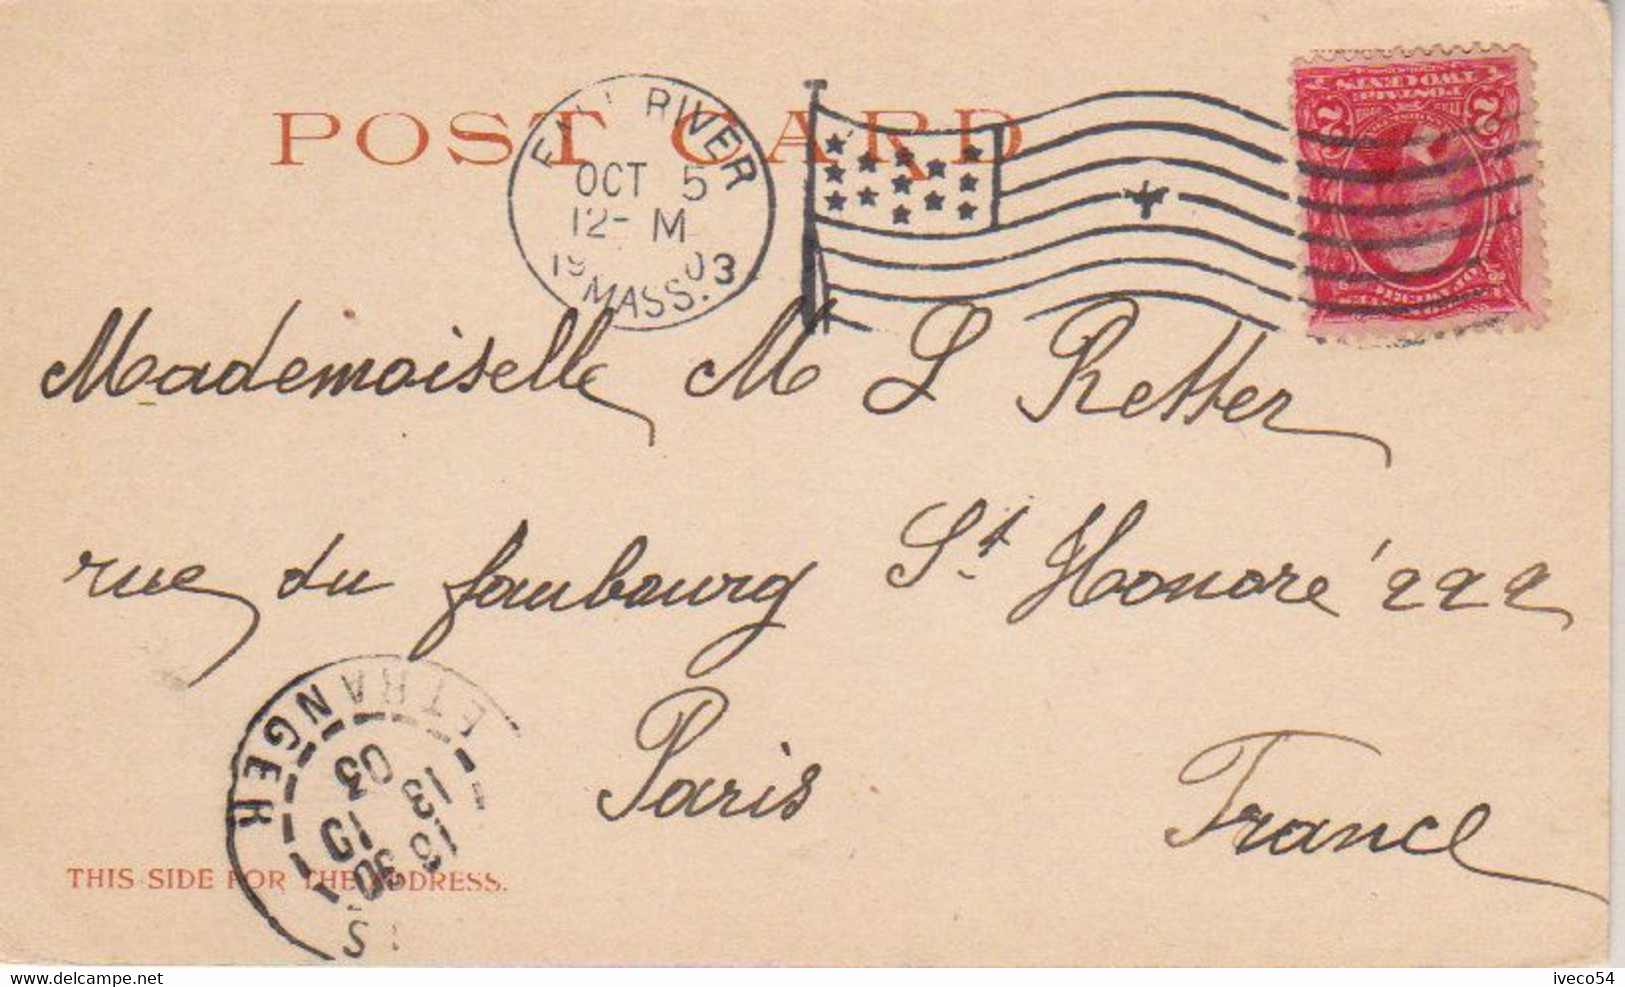 POST CARD
FALL RIVER
OCT 5
12- M
1903
MASS.
TWO CENTS
POSTAGE
2 2
Mademoiselle M L Retter
rue du faubourg St Honoré 222
Paris
France
ETRANGER
THIS SIDE FOR THE ADDRESS.
www.delcampe.net
iveco54